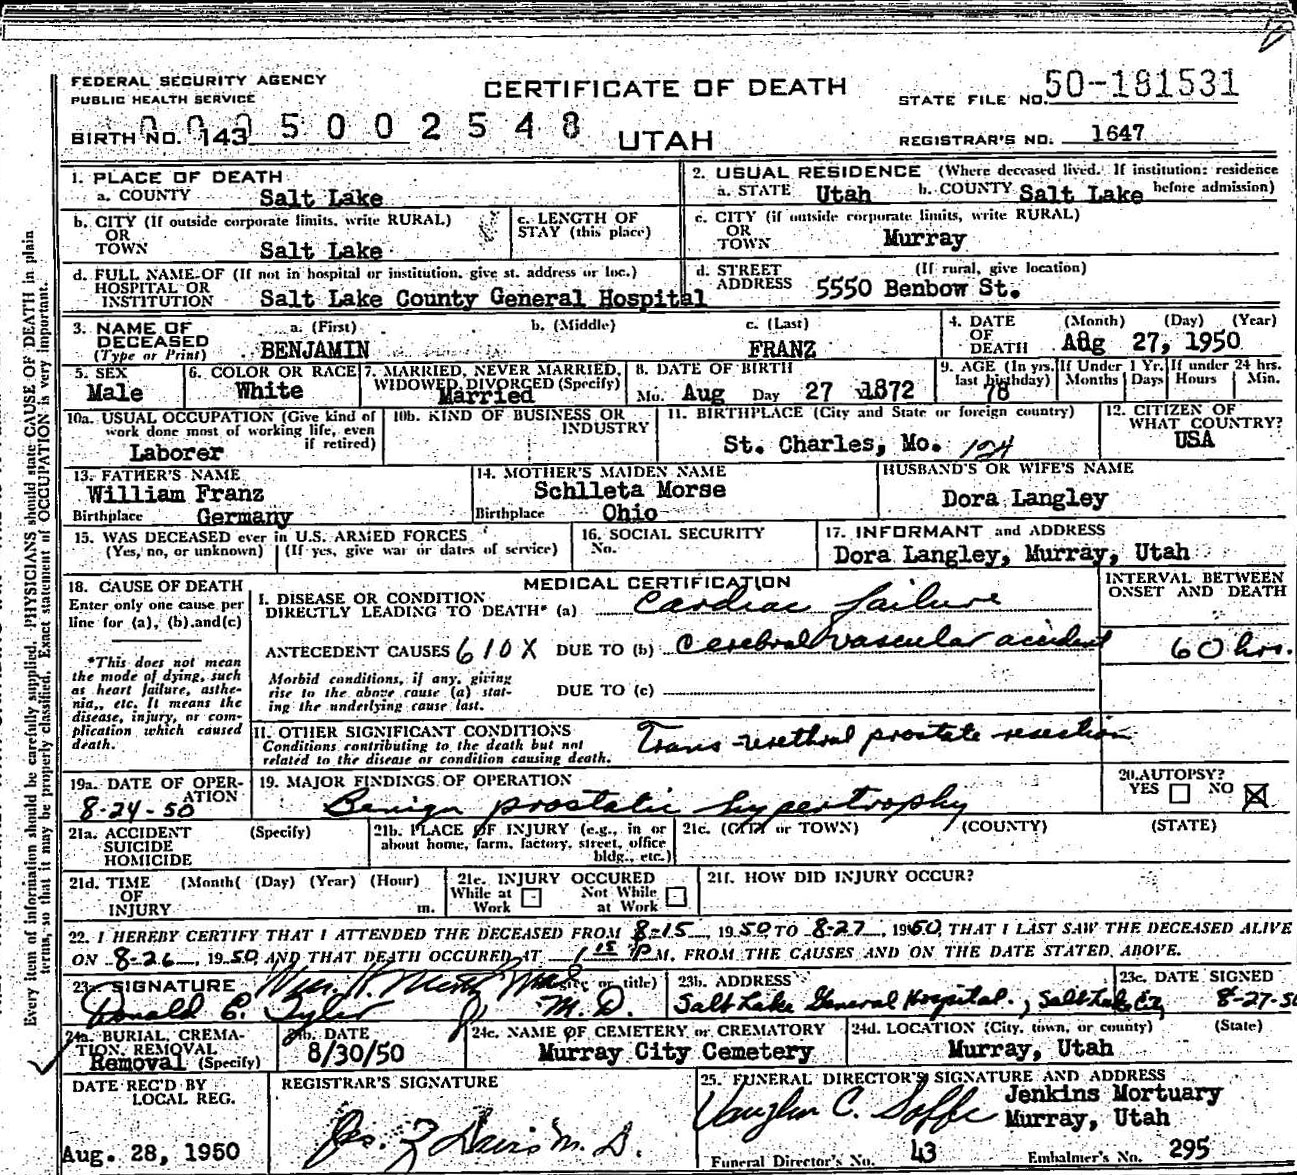 FEDERAL SECURITY AGENCY
PUBLIC HEALTH SERVICE
CERTIFICATE OF DEATH
STATE FILE NO. 50-181531
BIRTH NO. 143 5 0 0 2 5 4 8
UTAH
REGISTRAR'S NO. 1647
1. PLACE OF DEATH
a. COUNTY Salt Lake
2. USUAL RESIDENCE (Where deceased lived. If institution: residence before admission)
a. STATE Utah b. COUNTY Salt Lake
b. CITY (If outside corporate limits, write RURAL)
OR
TOWN Salt Lake
c. LENGTH OF
STAY (this place)
c. CITY (if outside corporate limits, write RURAL)
OR
TOWN Murray
d. FULL NAME OF (If not in hospital or institution, give st. address or loc.)
HOSPITAL OR
INSTITUTION Salt Lake County General Hospital
d. STREET (If rural, give location)
ADDRESS 5550 Benbow St.
3. NAME OF
DECEASED
(Type or Print)
a. (First) b. (Middle) c. (Last)
BENJAMIN FRANZ
4. DATE (Month) (Day) (Year)
OF
DEATH Aug 27, 1950
5. SEX
Male
6. COLOR OR RACE
White
7. MARRIED, NEVER MARRIED,
WIDOWED DIVORCED (Specify)
Married
8. DATE OF BIRTH
Mo. Aug Day 27 1872
9. AGE (In yrs. last birthday)
78
If Under 1 Yr.
Months Days
If under 24 hrs.
Hours Min.
10a. USUAL OCCUPATION (Give kind of
work done most of working life, even
if retired)
Laborer
10b. KIND OF BUSINESS OR
INDUSTRY
11. BIRTHPLACE (City and State or foreign country)
St. Charles, Mo.
12. CITIZEN OF
WHAT COUNTRY?
USA
13. FATHER'S NAME
William Franz
Birthplace Germany
14. MOTHER'S MAIDEN NAME
Schlleta Morse
Birthplace Ohio
HUSBAND'S OR WIFE'S NAME
Dora Langley
15. WAS DECEASED ever in U.S. ARMED FORCES
(Yes, no, or unknown) (If yes, give war or dates of service)
16. SOCIAL SECURITY
No.
17. INFORMANT and ADDRESS
Dora Langley, Murray, Utah
18. CAUSE OF DEATH
Enter only one cause per
line for (a), (b).and(c)
*This does not mean
the mode of dying, such
as heart failure, asthe-
nia,, etc. It means the
disease, injury, or com-
plication which caused
death.
MEDICAL CERTIFICATION
I. DISEASE OR CONDITION
DIRECTLY LEADING TO DEATH* (a) Cardiac failure
ANTECEDENT CAUSES 610X DUE TO (b) Cerebral vascular accident
Morbid conditions, if any, giving
rise to the above cause (a) stat-
ing the underlying cause last.
DUE TO (c)
INTERVAL BETWEEN
ONSET AND DEATH
60 hrs.
II. OTHER SIGNIFICANT CONDITIONS
Conditions contributing to the death but not
related to the disease or condition causing death.
Trans-urethral prostate resection
19a. DATE OF OPER-
ATION
8-24-50
19. MAJOR FINDINGS OF OPERATION
Benign prostatic hypertrophy
20. AUTOPSY?
YES NO X
21a. ACCIDENT (Specify)
SUICIDE
HOMICIDE
21b. PLACE OF INJURY (e.g., in or
about home, farm, factory, street, office
bldg., etc.)
21c. (CITY or TOWN) (COUNTY) (STATE)
21d. TIME (Month( (Day) (Year) (Hour)
OF
INJURY m.
21e. INJURY OCCURED
While at Work
Not While at Work
21f. HOW DID INJURY OCCUR?
22. I HEREBY CERTIFY THAT I ATTENDED THE DECEASED FROM 8-15, 1950 TO 8-27, 1950, THAT I LAST SAW THE DECEASED ALIVE
ON 8-26, 1950, AND THAT DEATH OCCURED AT 1 15 P M, FROM THE CAUSES AND ON THE DATE STATED ABOVE.
23a. SIGNATURE (Degree or title)
Donald E. Tyler M.D.
23b. ADDRESS
Salt Lake General Hospital., Salt Lake City
23c. DATE SIGNED
8-27-50
24a. BURIAL, CREMA-
TION, REMOVAL
Removal (Specify)
24b. DATE
8/30/50
24c. NAME OF CEMETERY or CREMATORY
Murray City Cemetery
24d. LOCATION (City, town, or county) (State)
Murray, Utah
DATE REC'D BY
LOCAL REG.
Aug. 28, 1950
REGISTRAR'S SIGNATURE
Davis M.D.
25. FUNERAL DIRECTOR'S SIGNATURE AND ADDRESS
Vaughn C. Soffe
Jenkins Mortuary
Murray, Utah
Funeral Director's No. 43 Embalmer's No. 295
Every item of information should be carefully supplied. PHYSICIANS should state CAUSE OF DEATH in plain
terms, so that it may be properly classified. Exact statement of OCCUPATION is very important.